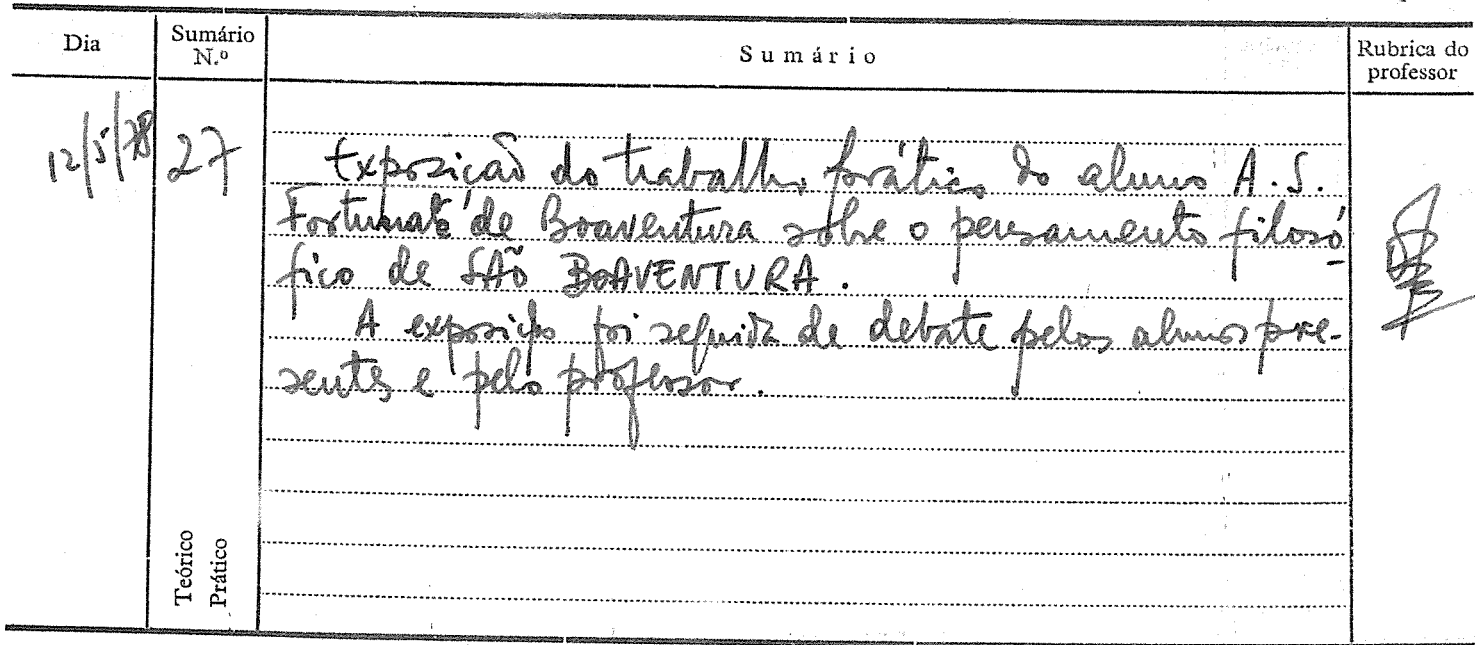 Dia
Sumário
N.º
Sumário
Rubrica do
professor
12/5/78
27
Exposição do trabalho prático do aluno A. S.
Fortunato de Boaventura sobre o pensamento filosó
fico de SÃO BOAVENTURA.
A exposição foi seguida de debate pelos alunos pre-
sentes e pelo professor.
Teórico
Prático